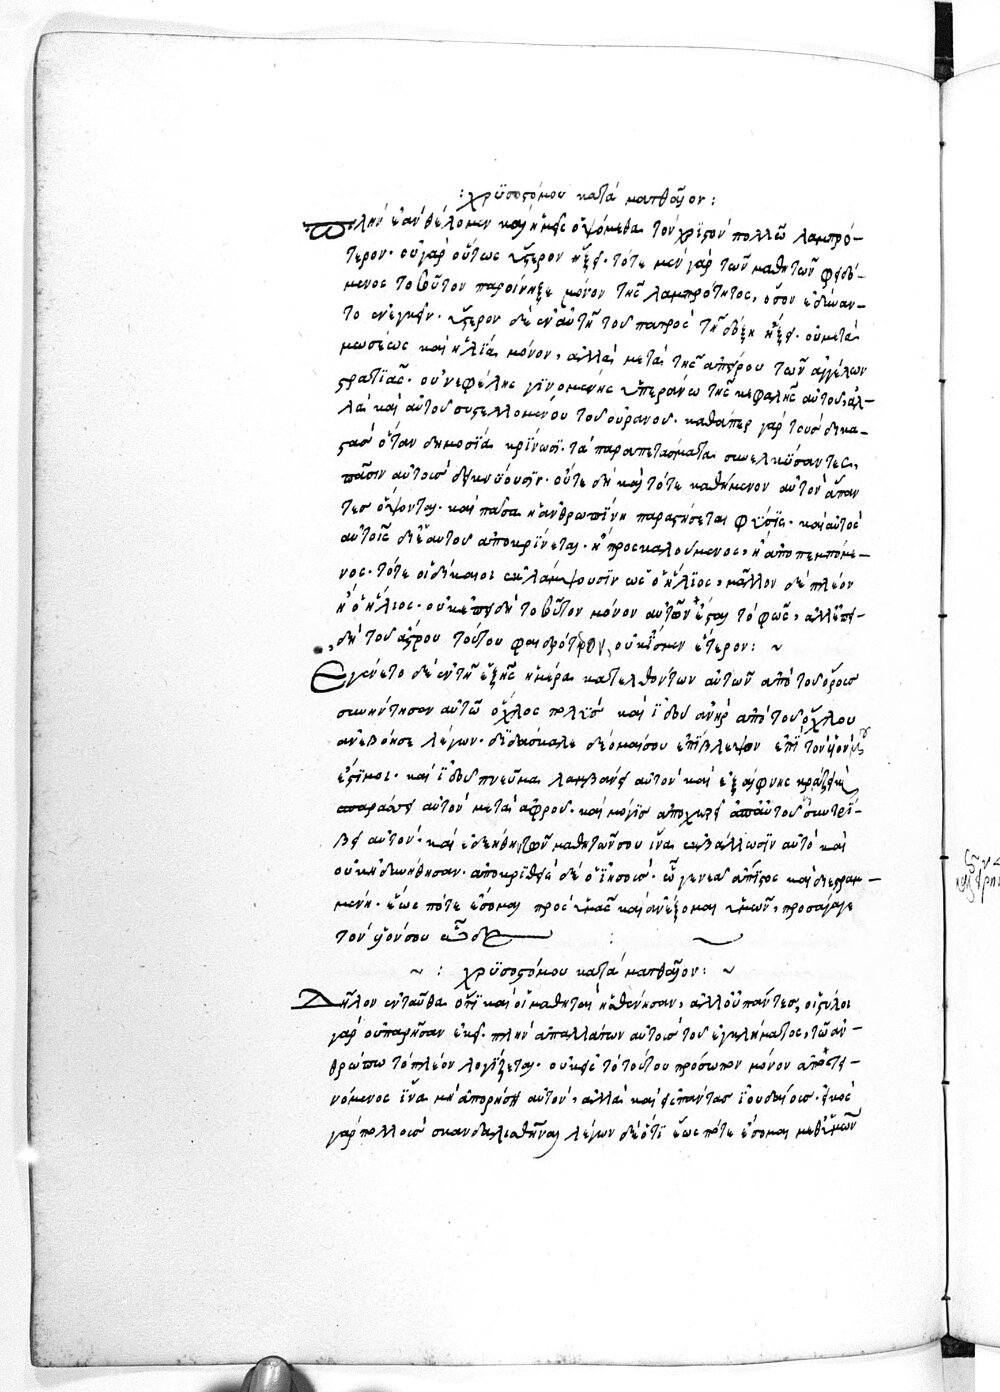 : χρϋσοστόμου κατά ματθαῖον :
Πλὴν ἐὰν θέλομεν καὶ ἡμεῖς ὀψόμεθα τὸν χριστὸν πολλῶ λαμπρό-
τερον· οὐ γὰρ οὕτως ὕστερον ἥξει· τότε μὲν γὰρ τῶν μαθητῶν φειδό-
μενος τοσοῦτον παροίνηξε μόνον τῆς λαμπρότητος, ὅσον ἐδύναν-
το ἐνεγκεῖν· ὕστερον δὲ ἐν αὐτῆ τοῦ πατρὸς τῆ δόξη ἥξει· οὐ μετὰ
μωσέως καὶ ἡλία μόνον, ἀλλὰ μετὰ τῆς ἀπείρου τῶν ἀγγέλων
στρατιᾶς· οὐ νεφέλης γινομένης ὑπεράνω τῆς κεφαλῆς αὐτοῦ, ἀλ-
λὰ καὶ αὐτοῦ συστελλομένου τοῦ οὐρανοῦ· καθάπερ γὰρ τοὺς δικα-
στὰς ὅταν δημοσία κρίνωσι· τὰ παραπετάσματα συνελκύσαντες,
πᾶσιν αὐτοὺς δεικνύουσιν· οὕτε δὴ καὶ τότε καθήμενον αὐτὸν ἅπαν
τες ὄψονται· καὶ πᾶσα ἡ ἀνθρωπίνη παραστήσεται φύσις· καὶ αὐτὸς
αὐτοῖς δι' ἑαυτοῦ ἀποκρίνεται· ἢ προσκαλούμενος, ἢ ἀποπεμπόμε-
νος· τότε οἱ δίκαιοι ἐκλάμψουσιν ὡς ὁ ἥλιος, μᾶλλον δὲ πλέον
ἢ ὁ ἥλιος· οὐκ ἐπειδὴ τοσοῦτον μόνον αὐτῶν ἔσται τὸ φῶς, ἀλλ' ἐπει-
δὴ τοῦ ἄστρου τούτου φαιδρότερον, οὐκ ἴσμεν ἕτερον: ~
Ἐγένετο δὲ ἐν τῆ ἑξῆς ἡμέρα κατελθόντων αὐτῶν ἀπὸ τοῦ ὄρους
συνήντησεν αὐτῶ ὄχλος πολὺς καὶ ἰδοὺ ἀνὴρ ἀπὸ τοῦ ὄχλου
ἀνεβόησε λέγων· διδάσκαλε δέομαί σου ἐπίβλεψον ἐπὶ τὸν υἱόν μου
ἐστί μοι· καὶ ἰδοὺ πνεῦμα λαμβάνει αὐτὸν καὶ ἐξαίφνης κράζει καὶ
σπαράσει αὐτὸν μετὰ ἀφροῦ· καὶ μόγις ἀποχωρεῖ ἀπ' αὐτοῦ συντρί-
βει αὐτόν· καὶ ἐδεήθην τῶν μαθητῶν σου ἵνα ἐκβάλλωσιν αὐτὸ καὶ
οὐκ ἠδυνήθησαν· ἀποκριθεὶς δὲ ὁ ἰησοῦς· ὦ γενεὰ ἄπιστος καὶ διεστραμ-
μένη· ἕως πότε ἔσομαι πρὸς ὑμᾶς καὶ ἀνέξομαι ὑμῶν, προσάγαγε
τὸν υἱόν σου ὧδε
~ : χρϋσοστόμου κατά ματθαῖον: ~
Δῆλον ἐνταῦθα ὅτι καὶ οἱ μαθηταὶ ἠσθένησαν, ἀλλ' οὐ πάντες, οἱ στύλοι
γὰρ οὐ παρῆσαν ἐκεῖ· πλὴν ἀπαλλάττων αὐτοὺς τοῦ ἐγκλήματος, τῶ ἀν-
θρώπω τὸ πλέον λογίζεται· οὐκ εἰς τὸ τούτου πρόσωπον μόνον ἀποτει-
νόμενος ἵνα μὴ ἀπορήση αὐτὸν, ἀλλὰ καὶ εἰς πάντας ἰουδαίους· εἰκὸς
γὰρ πολλοὺς σκανδαλισθῆναι λέγων δὲ ὅτι ἕως πότε ἔσομαι μεθ' ὑμῶν